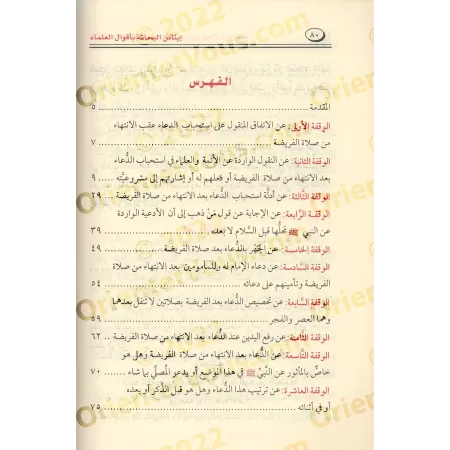 ٨٠
إيناس البحاثة بأقوال العلماء
الفهرس
المقدمة ........ ٥
الوقفة الأولى: عن الاتفاق المنقول على استحباب الدعاء عقب الانتهاء
من صلاة الفريضة ........ ٧
الوقفة الثانية: عن النقول الواردة عن الأئمة والعلماء في استحباب الدُّعاء
بعد الانتهاء من صلاة الفريضة أو فعلهم له أو إشارتهم إلى مشروعيَّته .... ٩
الوقفة الثَّالثة: عن أدلَّة استحباب الدُّعاء بعد الانتهاء من صلاة الفريضة .. ٢٩
الوقفة الرَّابعة: عن الإجابة عن قول مَنْ ذهب إلى أن الأدعية الواردة
عن النبي ﷺ محلُّها قبل السَّلام لا بعده ........ ٣٩
الوقفة الخامسة: عن الجَهْر بالدُّعاء بعد صلاة الفريضة ........ ٤٩
الوقفة السَّادسة: عن دعاء الإمام له وللمأمومين بعد الانتهاء من صلاة
الفريضة وتأمينهم على دعائه ........ ٥٤
الوقفة السَّابعة: عن تخصيص الدُّعاء بعد الفريضة بصلاتين لا تنفل بعدهما
وهما العصر والفجر ........ ٥٩
الوقفة الثَّامنة: عن رفع اليدين عند الدُّعاء بعد الانتهاء من صلاة الفريضة .. ٦٢
الوقفة التَّاسعة: عن الدُّعاء بعد الانتهاء من صلاة الفريضة وهل هو
خاصٌّ بالمأثور عن النَّبيِّ ﷺ في هذا الموضع أو يدعو المُصلِّي بما شاء .... ٧٠
الوقفة العاشرة: عن ترتيب هذا الدُّعاء وهل هو قبل الذِّكر أو بعده
أو في أثنائه ........ ٧٥